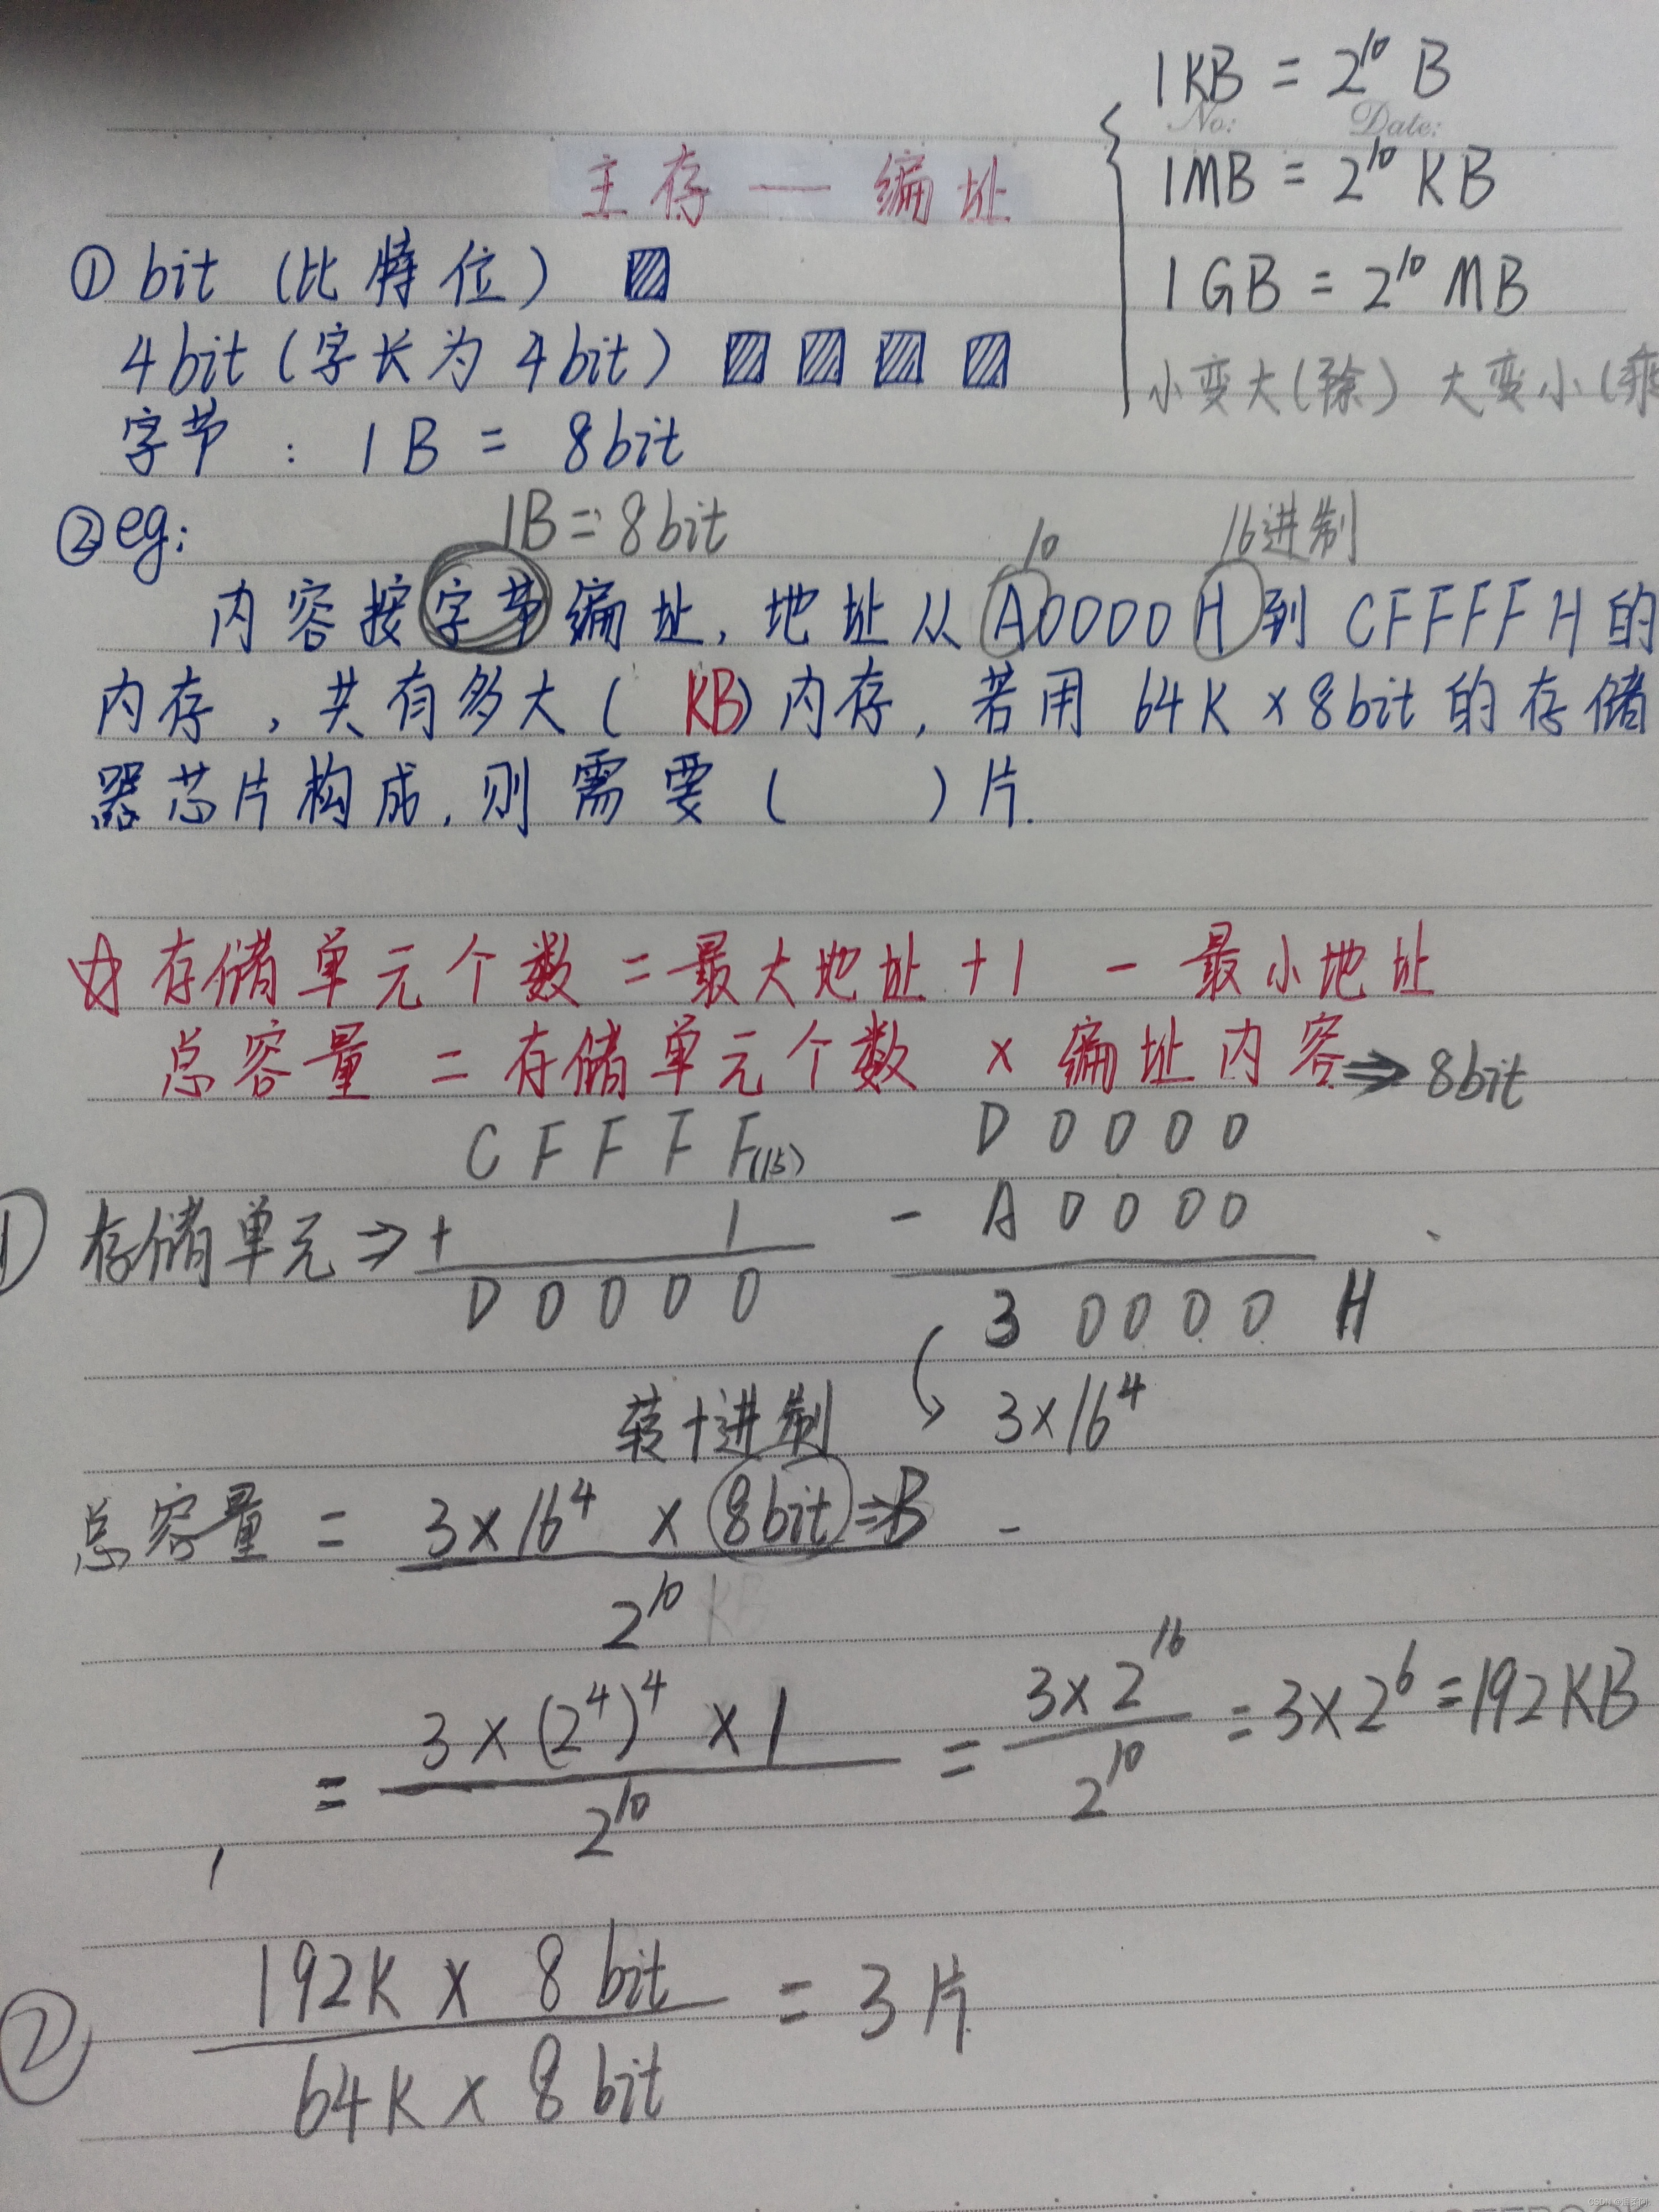 1KB = 2^10 B
No: Date:
1MB = 2^10 KB
1GB = 2^10 MB
小变大(除) 大变小(乘
主存 — 编址
① bit (比特位)
4bit (字长为 4bit)
字节 : 1B = 8bit
② eg:
1B = 8bit
10 16进制
内容按字节编址, 地址从 A0000H 到 CFFFFH 的
内存, 共有多大( KB)内存, 若用 64K × 8bit 的存储
器芯片构成, 则需要 ( ) 片.
存储单元个数 = 最大地址 + 1 - 最小地址
总容量 = 存储单元个数 × 编址内容 ⇒ 8bit
C F F F F(15) D 0 0 0 0
① 存储单元 ⇒ + 1 - A 0 0 0 0
D 0 0 0 0 3 0 0 0 0 H
转十进制 3×16^4
总容量 = 3×16^4 × 8bit ⇒ B
2^10 KB
= 3 × (2^4)^4 × 1 / 2^10 = 3×2^16 / 2^10 = 3×2^6 = 192KB
② 192K × 8 bit / 64K × 8 bit = 3 片